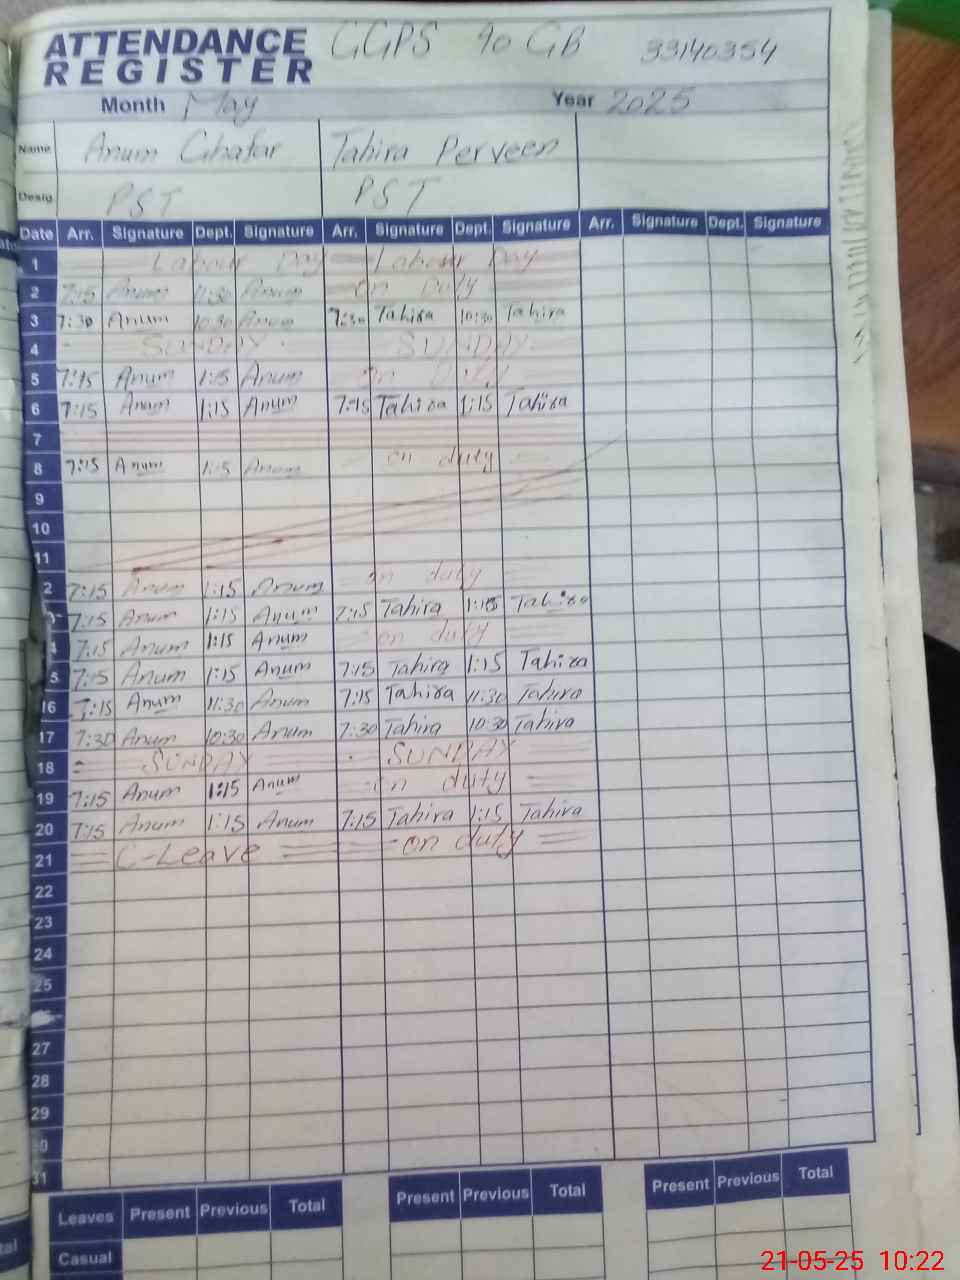 ATTENDANCE REGISTER GGPS 90 GB 33140354
Month May Year 2025
Name Anum Ghafar Tahira Perveen
Desig. PST PST
Date Arr. Signature Dept. Signature Arr. Signature Dept. Signature Arr. Signature Dept. Signature
1 Labour Day Labour Day
2 7:15 Anum 11:30 Anum on Duty
3 7:30 Anum 10:30 Anum 7:30 Tahira 10:30 Tahira
4 SUNDAY SUNDAY
5 7:15 Anum 1:15 Anum on Duty
6 7:15 Anum 1:15 Anum 7:15 Tahira 1:15 Tahira
7
8 7:15 Anum 1:15 Anum on duty
9
10
11
2 7:15 Anum 1:15 Anum on duty
7:15 Anum 1:15 Anum 7:15 Tahira 1:15 Tahira
7:15 Anum 1:15 Anum on duty
5 7:15 Anum 1:15 Anum 7:15 Tahira 1:15 Tahira
16 7:15 Anum 11:30 Anum 7:15 Tahira 11:30 Tahira
17 7:30 Anum 10:30 Anum 7:30 Tahira 10:30 Tahira
18 SUNDAY SUNDAY
19 7:15 Anum 1:15 Anum on duty
20 7:15 Anum 1:15 Anum 7:15 Tahira 1:15 Tahira
21 C-Leave on duty
22
23
24
25
27
28
29
30
31
Leaves Present Previous Total Present Previous Total Present Previous Total
Casual
21-05-25 10:22